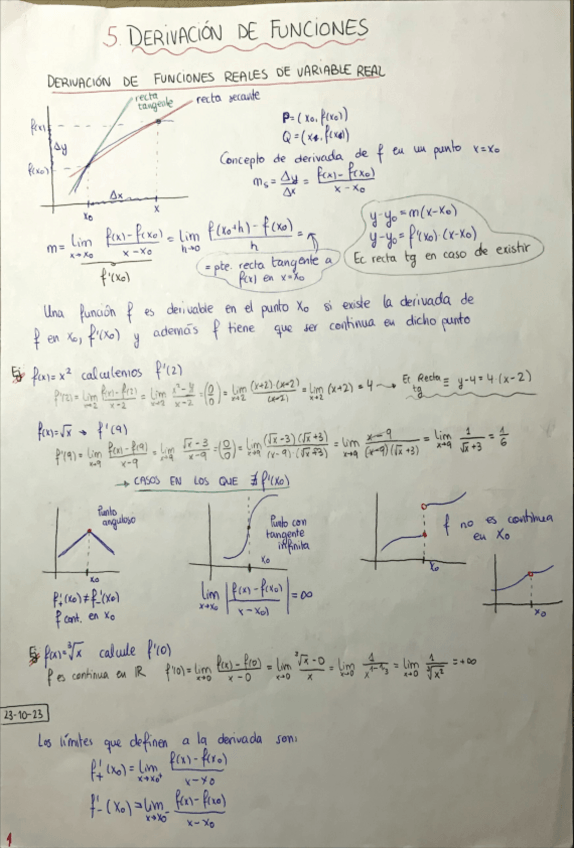 5. DERIVACIÓN DE FUNCIONES
DERIVACIÓN DE FUNCIONES REALES DE VARIABLE REAL
recta tangente
recta secante
f(x)
Δy
f(x₀)
Δx
x₀
x
P = (x₀, f(x₀))
Q = (x₁, f(x₁))
Concepto de derivada de f en un punto x=x₀
mₛ = Δy/Δx = (f(x)-f(x₀))/(x-x₀)
m = lim x→x₀ (f(x)-f(x₀))/(x-x₀) = lim h→0 (f(x₀+h)-f(x₀))/h =
f'(x₀)
= pte. recta tangente a
f(x) en x=x₀
y-y₀ = m(x-x₀)
y-y₀ = f'(x₀)·(x-x₀)
Ec recta tg en caso de existir
Una función f es derivable en el punto x₀ si existe la derivada de
f en x₀, f'(x₀) y además f tiene que ser continua en dicho punto
Ej f(x)=x² calculemos f'(2)
f'(2) = lim x→2 (f(x)-f(2))/(x-2) = lim x→2 (x²-4)/(x-2) = (0/0) = lim x→2 (x+2)·(x-2)/(x-2) = lim x→2 (x+2) = 4 → Ec Recta tg ≡ y-4=4·(x-2)
f(x)=√x → f'(9)
f'(9) = lim x→9 (f(x)-f(9))/(x-9) = lim x→9 (√x-3)/(x-9) = (0/0) = lim x→9 (√x-3)(√x+3)/(x-9)·(√x+3) = lim x→9 (x-9)/(x-9)(√x+3) = lim x→9 1/(√x+3) = 1/6
→ CASOS EN LOS QUE ∄ f'(x₀)
Punto anguloso
x₀
f'₊(x₀) ≠ f'₋(x₀)
f cont. en x₀
Punto con
tangente
infinita
x₀
lim x→x₀ |(f(x)-f(x₀))/(x-x₀)| = ∞
f no es continua
en x₀
x₀
x₀
Ej f(x)=∛x calcule f'(0)
f es continua en IR f'(0) = lim x→0 (f(x)-f(0))/(x-0) = lim x→0 (∛x-0)/x = lim x→0 1/x^(1-1/3) = lim x→0 1/∛x² = +∞
23-10-23
Los límites que definen a la derivada son:
f'₊(x₀) = lim x→x₀⁺ (f(x)-f(x₀))/(x-x₀)
f'₋(x₀) = lim x→x₀⁻ (f(x)-f(x₀))/(x-x₀)
1